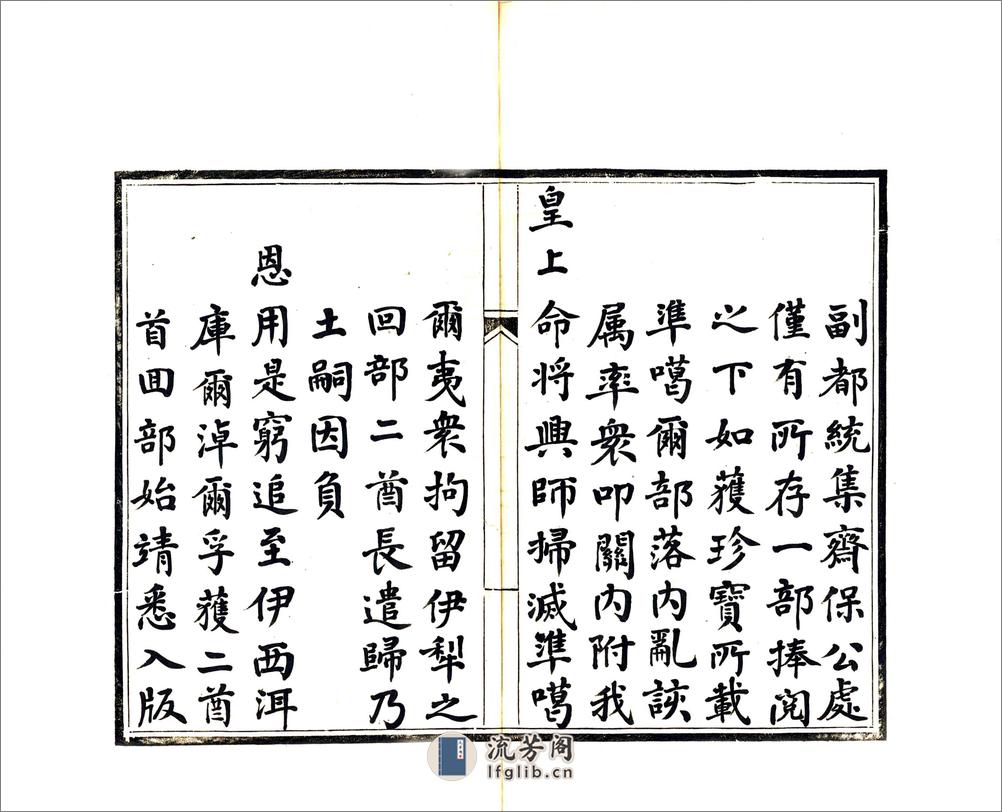 副都統集齋保公處
僅有所存一部捧閱
之下如獲珍寶所載
準噶爾部落内亂諸
属率衆叩關内附我
皇上命将興師掃滅準噶
爾夷衆拘留伊犁之
回部二酋長遣歸乃
土嗣因負
恩用是窮追至伊西洱
庫爾淖爾孚獲二酋
首回部始靖悉入版
流芳阁
lfglib.cn